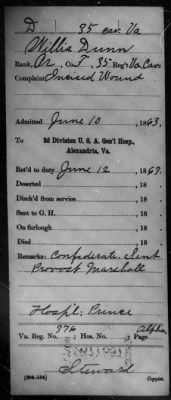 D 35 cav. Va
Willis Dunn
Rank, Co. F, 35 Reg't Va Cav.
Complaint, Incised Wound
Admitted June 10, 1863,
To 2d Division U. S. A. Gen'l Hosp.,
Alexandria, Va.
Ret'd to duty June 12, 1863.
Deserted, 18
Disch'd from service, 18
Sent to G. H., 18
On furlough, 18
Died, 18
Remarks: Confederate. Sent
Provost Marshall
Hospl: Prince
Va. Reg. No. 376 Hos. No. Page Alpha
Steward
(284-184) Copyist.